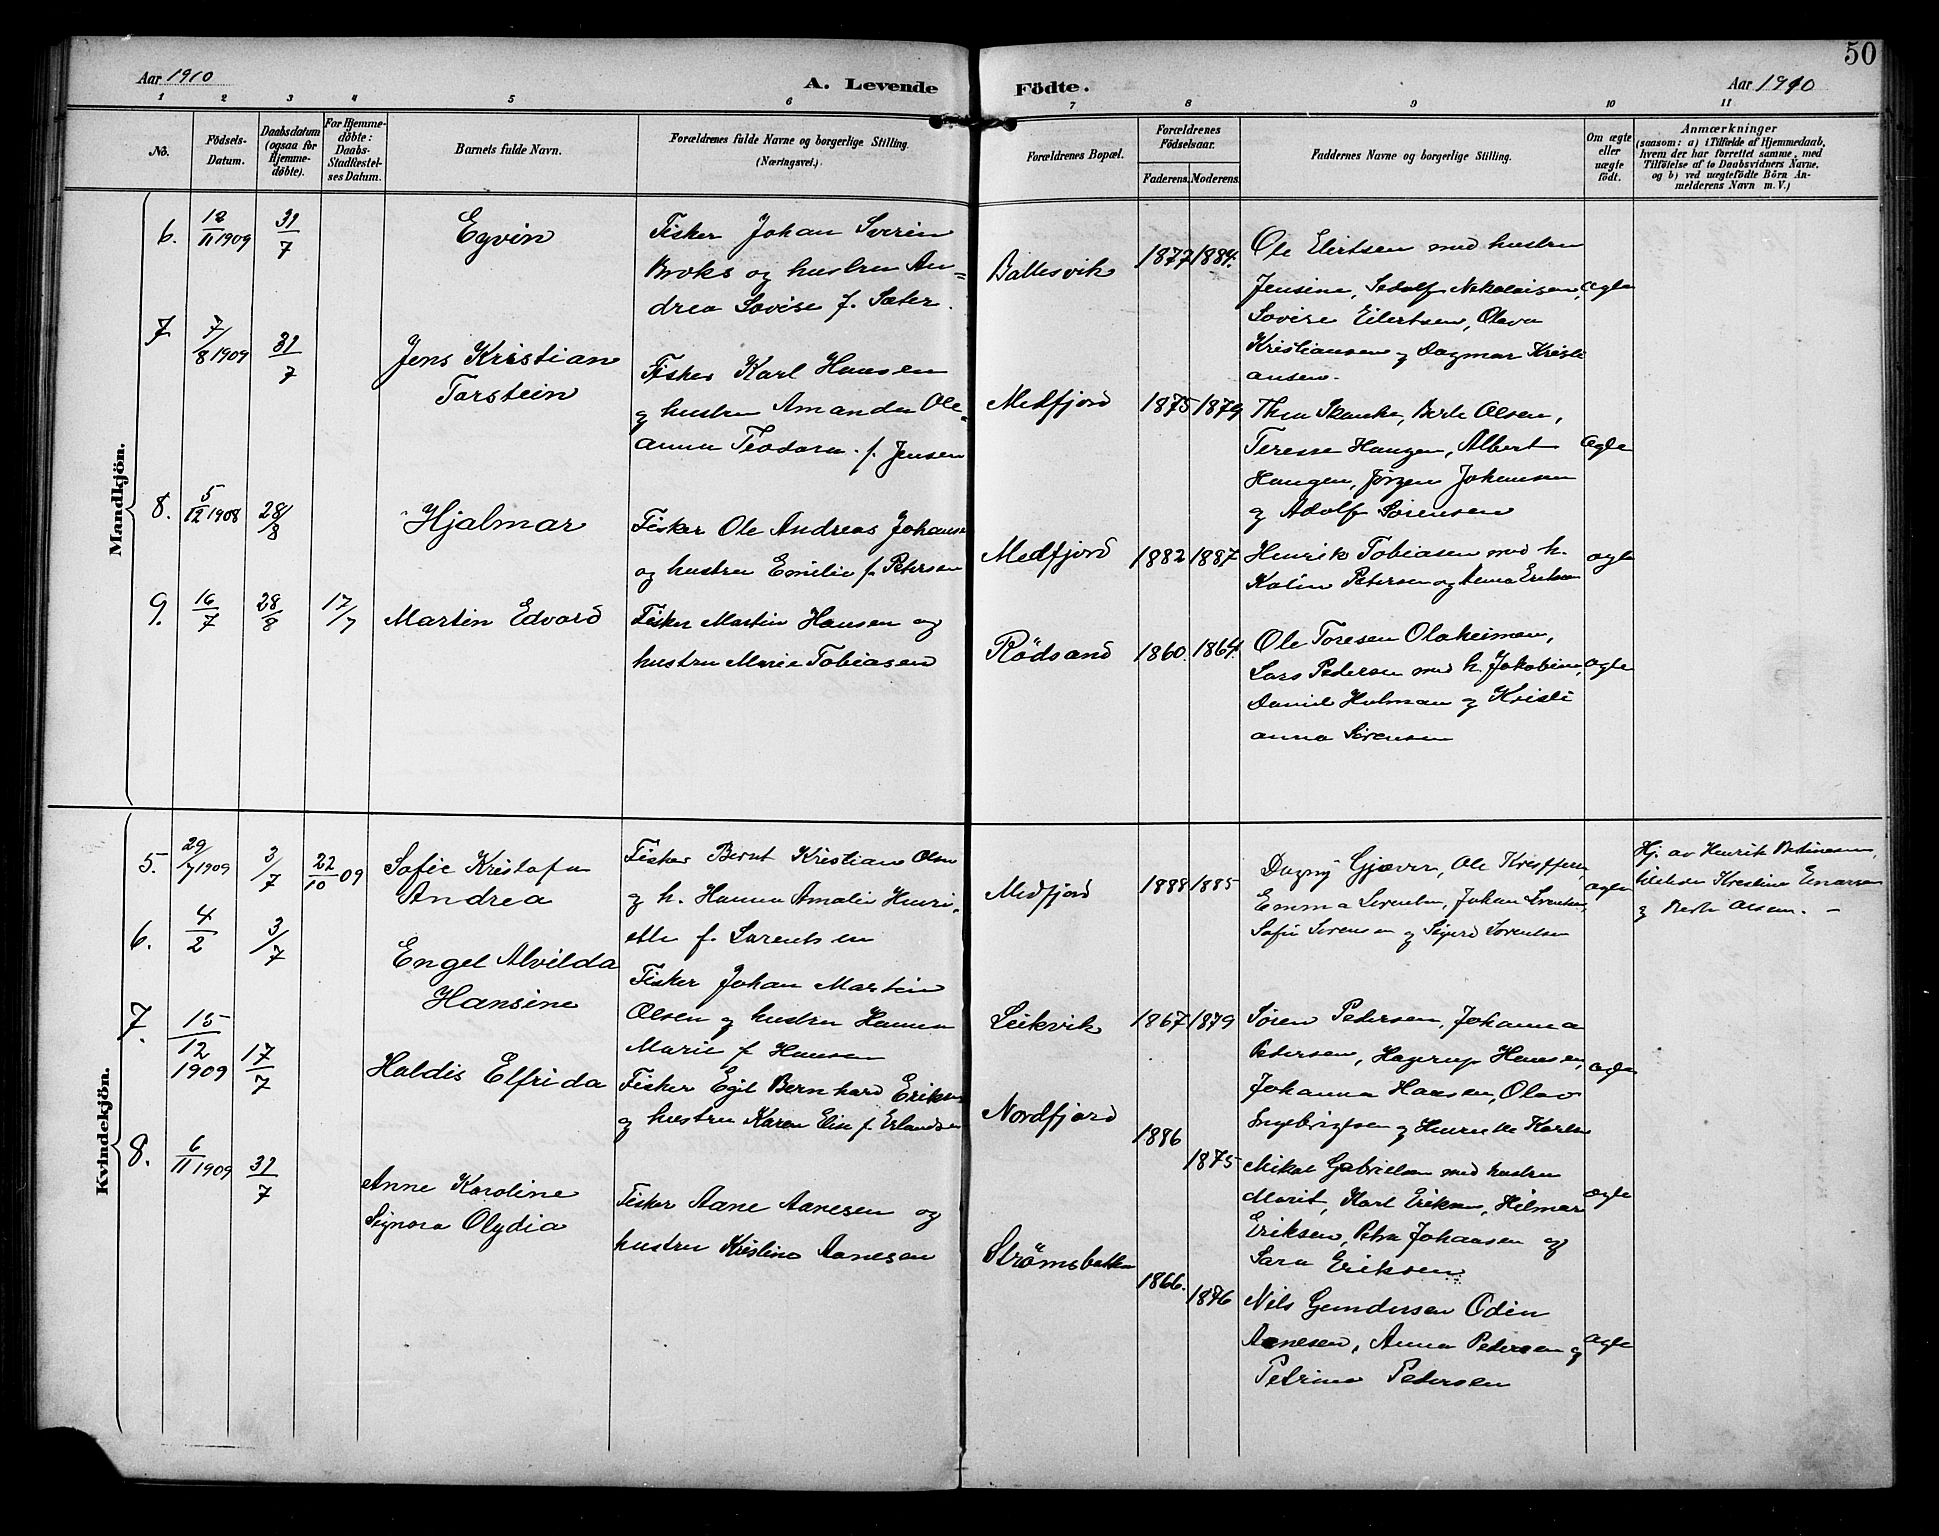 50
Aar 1910
A. Levende
Födte.
Aar 1910
1 2 3 4 5 6 7 8 9 10 11
No.
Födsels-
Datum.
Daabsdatum
(ogsaa for
Hjemme-
döbte).
For Hjemme-
döbte:
Daabs-
Stadfæstel-
ses Datum.
Barnets fulde Navn.
Forældrenes fulde Navne og borgerlige Stilling.
(Næringsvei.)
Forældrenes Bopæl.
Forældrenes
Födselsaar.
Faderens. Moderens.
Faddernes Navne og borgerlige Stilling.
Om ægte
eller
uægte
födt.
Anmærkninger
(saasom: a) i Tilfælde af Hjemmedaab,
hvem der har forrettet samme, med
Tilföielse af to Daabsvidners Navne.
og b) ved uægtefödte Börn An-
melderens Navn m. V.)
Mandkjön.
6. 12/11 1909 31/7
Egvin
Fisker Johan Sverin
Broks og hustru An=
drea Lovise f. Sæter.
Ballesvik
1877 1884.
Ole Elertsen med hustru
Jensine, Nikolaisen,
Lovise Eilertsen, Olava
Kristiansen og Dagmar Kristi
ansen.
ægte
7 7/8 1909 31/7
Jens Kristian
Torstein
Fisker Karl Hansen
og hustru Amanda Ole=
anna Teodora f. Jensen
Medfjord
1875 1879
Thea Skanke, Berte Olsen,
Terese Haugen, Albert
Haugen, Jørgen Johansen
og Adolf Sørensen
ægte
8. 5/12 1908 28/8
Hjalmar
Fisker Ole Andreas Johans
og hustru Emilie f. Petersen
Medfjord
1882 1887
Henrik Tobiasen med h.
Kalin Petersen og Anna Eriksen
ægte
9. 16/7 28/8 17/7
Martin Edvard
Fisker Martin Hansen og
hustru Marie Tobiasen
Rödsand
1860. 1864.
Ole Toresen Olaheimen,
Lars Pedersen med h. Jakobine,
Daniel Holman og Kristi
anna Sørensen
ægte
Kvindekjön.
5. 29/7 1909 3/7 22/10 09
Sofie Kristofa
Andrea
Fisker Bernt Kristian Olsen
og h. Hanna Amalie Henri-
ette f. Lorentsen
Medfjord
1888 1885
Dagny Gjæver, Ole Kristoffersen,
Emma Lorentsen, Johan Lorentsen,
Sofie Sørensen og Sigurd Lorentsen
ægte
Hj. av Henrik
tilstede Kristine Enarsen
og Berte Olsen. –
6. 4/2 3/7
Engel Alvilda
Hansine
Fisker Johan Martin
Olsen og hustru Hanna
Marie f. Hansen
Leikvik
1867 1879
Søren Pedersen, Johanna
Pedersen, Hagerup Hansen,
Johanna Hansen, Olav
Ingebrigtsen og Henrikke Karls
ægte
7. 15/12 1909 17/7
Haldis Elfrida
Fisker Egil Bernhard Eriksen
og hustru Karen Elise f. Erlandsen
Nordfjord
1886
1875
Mikal Gabrielsen med hustru
Marit, Karl Eriksen, Hilmar
Eriksen, Petra Johansen og
Sara Eriksen
ægte
8. 6/11 1909 31/7
Anne Karoline
Signora Olydia
Fisker Aane Aanesen og
hustru Kristine Aanesen
Strömsbotten
1866.
1876
Nils Gundersen Odin
Aanesen, Anna Pedersen og
Petrine Pedersen
ægte